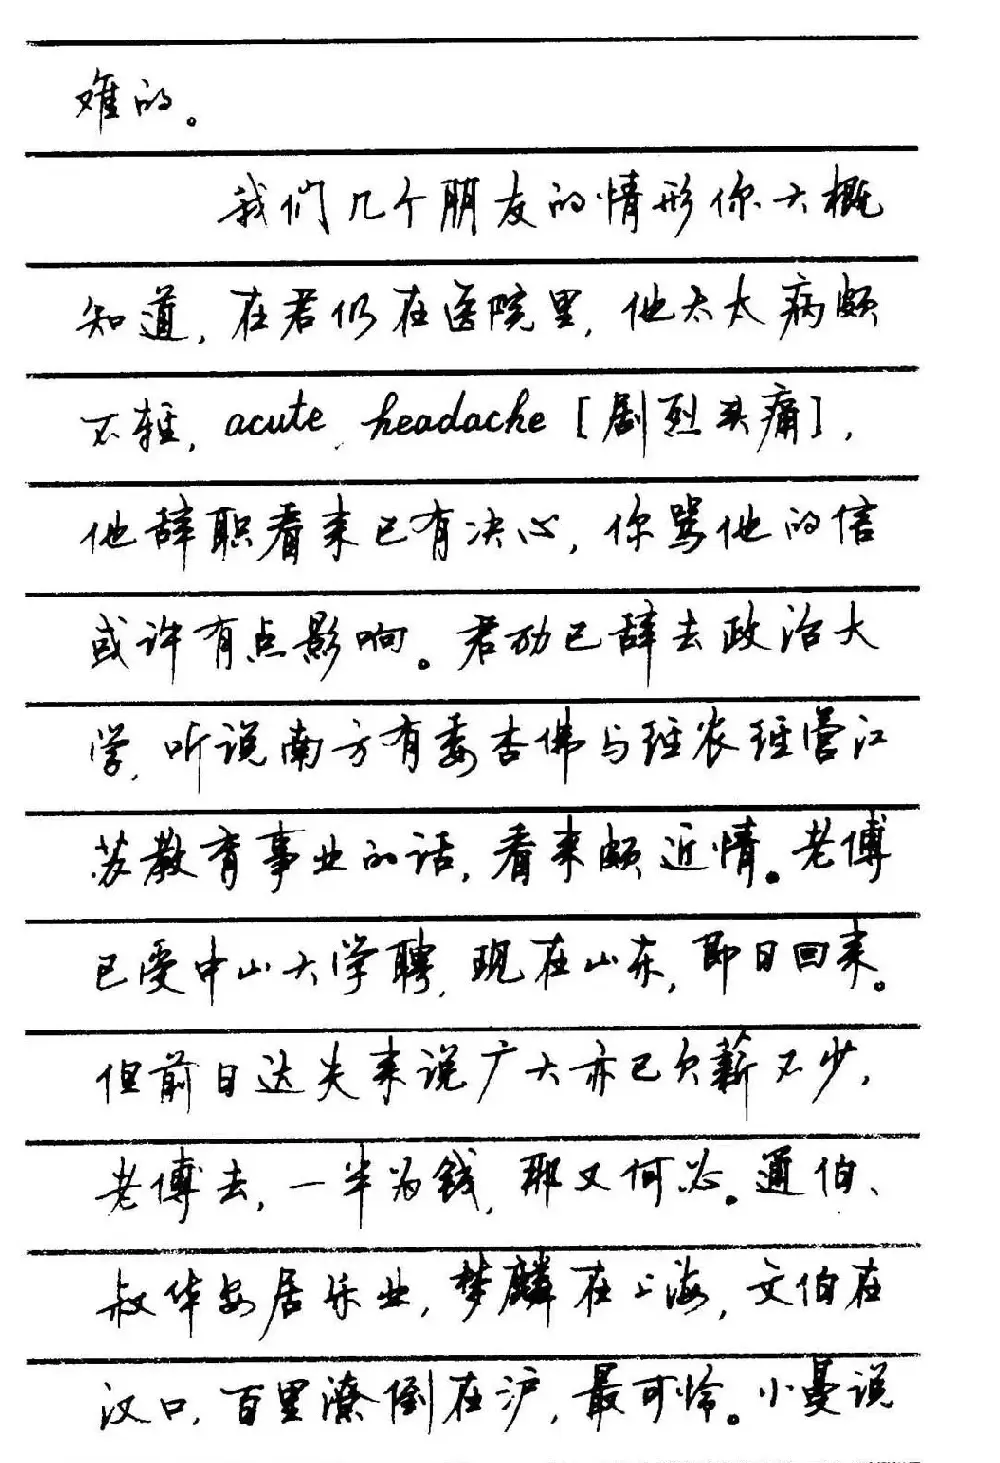 难的。
我们几个朋友的情形你大概
知道，在君仍在医院里，他太太病颇
不轻，acute headache [剧烈头痛]，
他辞职看来已有决心，你骂他的信
或许有点影响。君劢已辞去政治大
学，听说南方有委杏佛与经农经营江
苏教育事业的话，看来颇近情。老傅
已受中山大学聘，现在山东，即日回来。
但前日达夫来说广大亦已欠薪不少，
老傅去，一半为钱，那又何必。通伯、
叔华安居乐业，梦麟在上海，文伯在
汉口，百里潦倒在沪，最可怜。小曼说